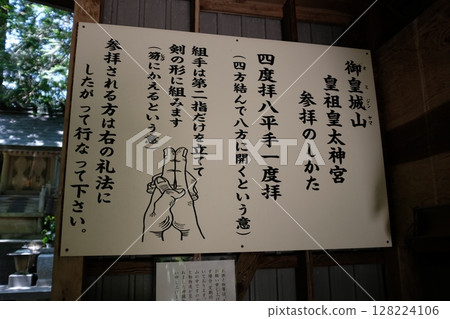 御皇城山
皇祖皇太神宮
参拝のしかた
四度拝八平手一度拝
(四方結んで八方に開くという意)
組手は第二指だけを立てて
剣の形に組みます
(芽にかえるという意)
参拝される方は右の礼法に
したがって行なって下さい。
128224106